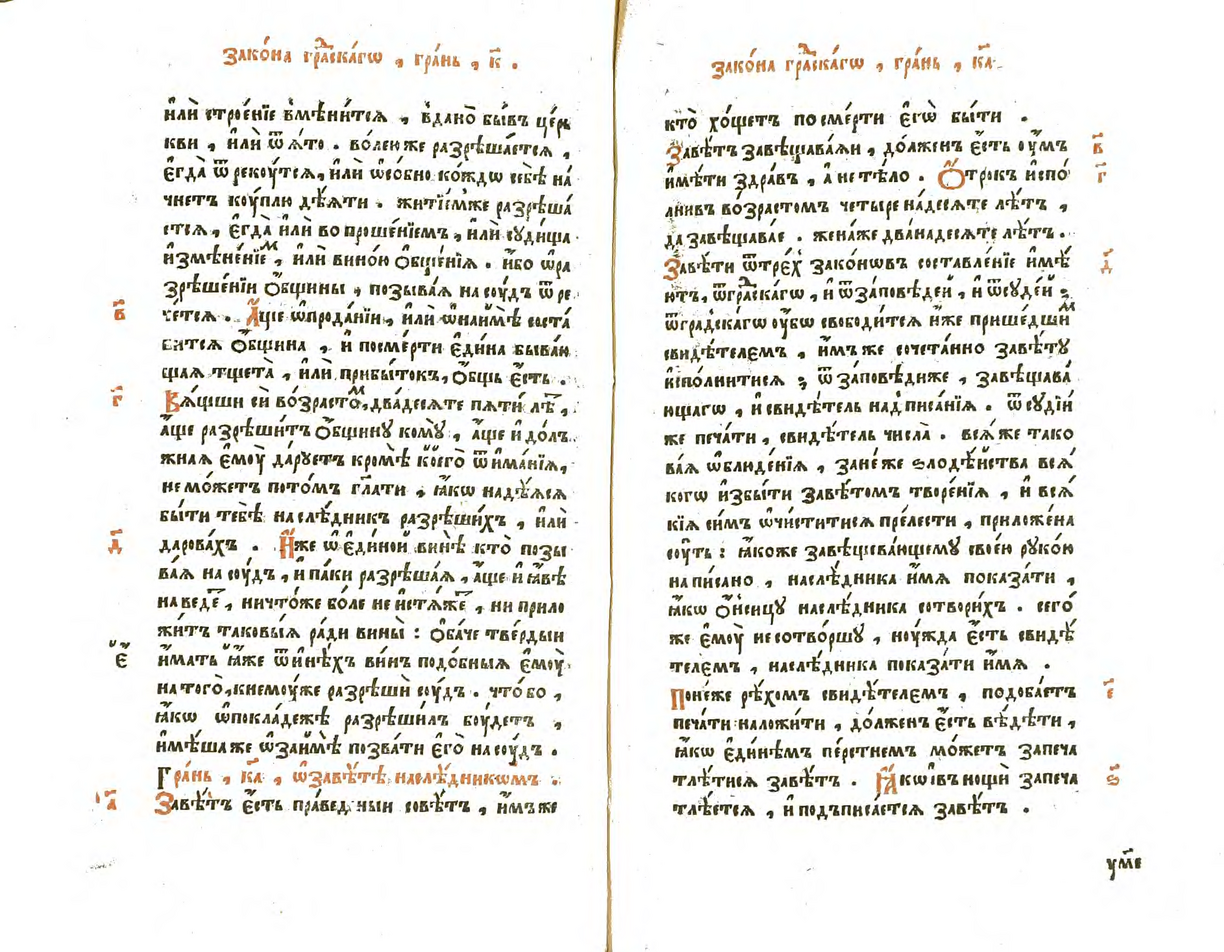 Зако́на гра́дскагѡ , гра́нь , к҃ .
и҆лѝ строе́нїе вмѣни́тсѧ , вдано̀ бы́въ це́рк
кви , и҆лѝ ѿѧ́то . во́лею же разрѣша́етсѧ ,
є҆гда̀ ѿрекꙋ́тсѧ, и҆лѝ ѡ҆со́бно ко́ждѡ себѣ̀ на
чне́тъ кꙋ́плю дѣ́ѧти . житїе́мже разрѣша́
етсѧ , є҆гда̀ и҆лѝ во проше́нїемъ , и҆лѝ сꙋди́ща
и҆змѣне́нїемъ , и҆лѝ вино́ю ѻ҆бще́нїѧ . и҆́бо ѡ҆ра
зрѣше́нїи ѻ҆́бщины , позыва́ѧ на сꙋ́дъ ѿре
четсѧ . А҆́ще ѡ҆прода́нїи , и҆лѝ ѡ҆на́имѣ соста́
витсѧ ѻ҆́бщина , и҆ посме́рти є҆ди́на быва́ю
щаѧ тщета̀ , и҆лѝ прибы́токъ, ѻ҆́бщь є҆́сть .
Вѧ́щши сы́й во́зрастомъ, два́десѧте пѧтѝ лѣ́тъ ,
а҆́ще разрѣши́тъ ѻ҆́бщинꙋ комꙋ̀ , а҆́ще и҆ до́лъ
жнаѧ є҆мꙋ̀ да́рꙋетъ кромѣ̀ коегѡ̀ ѿима́нїѧ,
не мо́жетъ пото́мъ гл҃ати , ꙗ҆́кѡ надѣ́ѧсѧ
бы́ти тебѣ̀ наслѣ́дникъ разрѣши́хъ , и҆лѝ
дарова́хъ . И҆́же ѡ҆є҆ди́ной винѣ̀ кто̀ позы
ва́ѧ на сꙋ́дъ , и҆ па́ки разрѣша́ѧ , а҆́ще и҆ ꙗ҆́вѣ
наведе́тъ , ничто́же бо́ле не и҆стѧ́жетъ , ни прило
жи́тъ таковы́ѧ ра́ди вины̀ : ѻ҆ба́че тве́рдыи
и҆́мать ꙗ҆̀же ѿи҆нѣ́хъ ви́нъ подо́бныѧ є҆мꙋ̀
на того̀, к немꙋ́же разрѣшѝ сꙋ́дъ . что́ бо ,
ꙗ҆́кѡ ѡ҆покла́дежѣ разрѣши́лъ бꙋ́детъ ,
и҆мѣ́ша же ѡ҆за́имѣ позва́ти є҆го̀ на сꙋ́дъ .
Гра́нь , к҃а , ѡ҆завѣ́тѣ наслѣ́дникѡмъ .
Завѣ́тъ є҆́сть пра́ведный совѣ́тъ , и҆́мъ же
в҃
г҃
д҃
є҃
а҃
Зако́на гра́дскагѡ , гра́нь , к҃а .
кто̀ хо́щетъ по сме́рти є҆гѡ̀ бы́ти .
Завѣ́тъ завѣщава́ѧи , до́лженъ є҆́сть ᲂу҆́мъ
и҆мѣ́ти здра́въ , а҆ не тѣ́ло . Ѻ҆́трокъ и҆спо́
лнивъ во́зрастомъ четы́ре на́десѧте лѣ́тъ ,
да завѣщава́е . жена́же два́надесѧте лѣ́тъ .
Завѣ́ти ѿтре́хъ зако́нѡвъ составле́нїе и҆мѣ́
ютъ, ѿгра́дскагѡ , и҆ ѿза́повѣдей , и҆ ѿсꙋде́й ;
ѿгра́дскагѡ ᲂу҆́бѡ свободи́тсѧ и҆́же прише́дшимъ
свидѣ́телемъ , и҆́мъ же сочета́нно завѣ́тꙋ
и҆спо́лнитисѧ ; ѿ за́повѣдиже , завѣщава́
ющагѡ , и҆ свидѣ́тель над̾писа́нїѧ . ѿ сꙋдїи́
же печа́ти , свидѣ́тель числа̀ . всѧ̑ же тако
ва́ѧ ѡ҆блюде́нїѧ , зане́же ѕлодѣ́йства всѧ́
когѡ и҆збы́ти завѣ́томъ творе́нїѧ , и҆ всѧ́
кїѧ си́мъ ѡ҆чи́ститисѧ пре́лести , приложе́на
сꙋ́ть : ꙗ҆́коже завѣщева́ющемꙋ свое́ю рꙋко́ю
напи́сано , наслѣ́дника и҆́мѧ показа́ти ,
ꙗ҆́кѡ ѻ҆́нсицꙋ наслѣ́дника сотвори́хъ . сего́
же є҆мꙋ̀ не сотво́ршꙋ , нꙋ́жда є҆́сть свидѣ́
телемъ , наслѣ́дника показа́ти и҆́мѧ .
Поне́же рѣ́хомъ свидѣ́телемъ , подоба́етъ
печа́ти наложи́ти , до́лженъ є҆́сть вѣ́дѣти ,
ꙗ҆́кѡ є҆ди́нѣмъ пе́рстнемъ мо́жетъ запеча
тлѣ́тисѧ завѣ́тъ . Ꙗ҆́кѡ і҆ в̾нощѝ запеча
тлѣ́етсѧ , и҆ подъписа́етсѧ завѣ́тъ .
в҃
г҃
д҃
є҃
ѕ҃
ꙋ҆ме